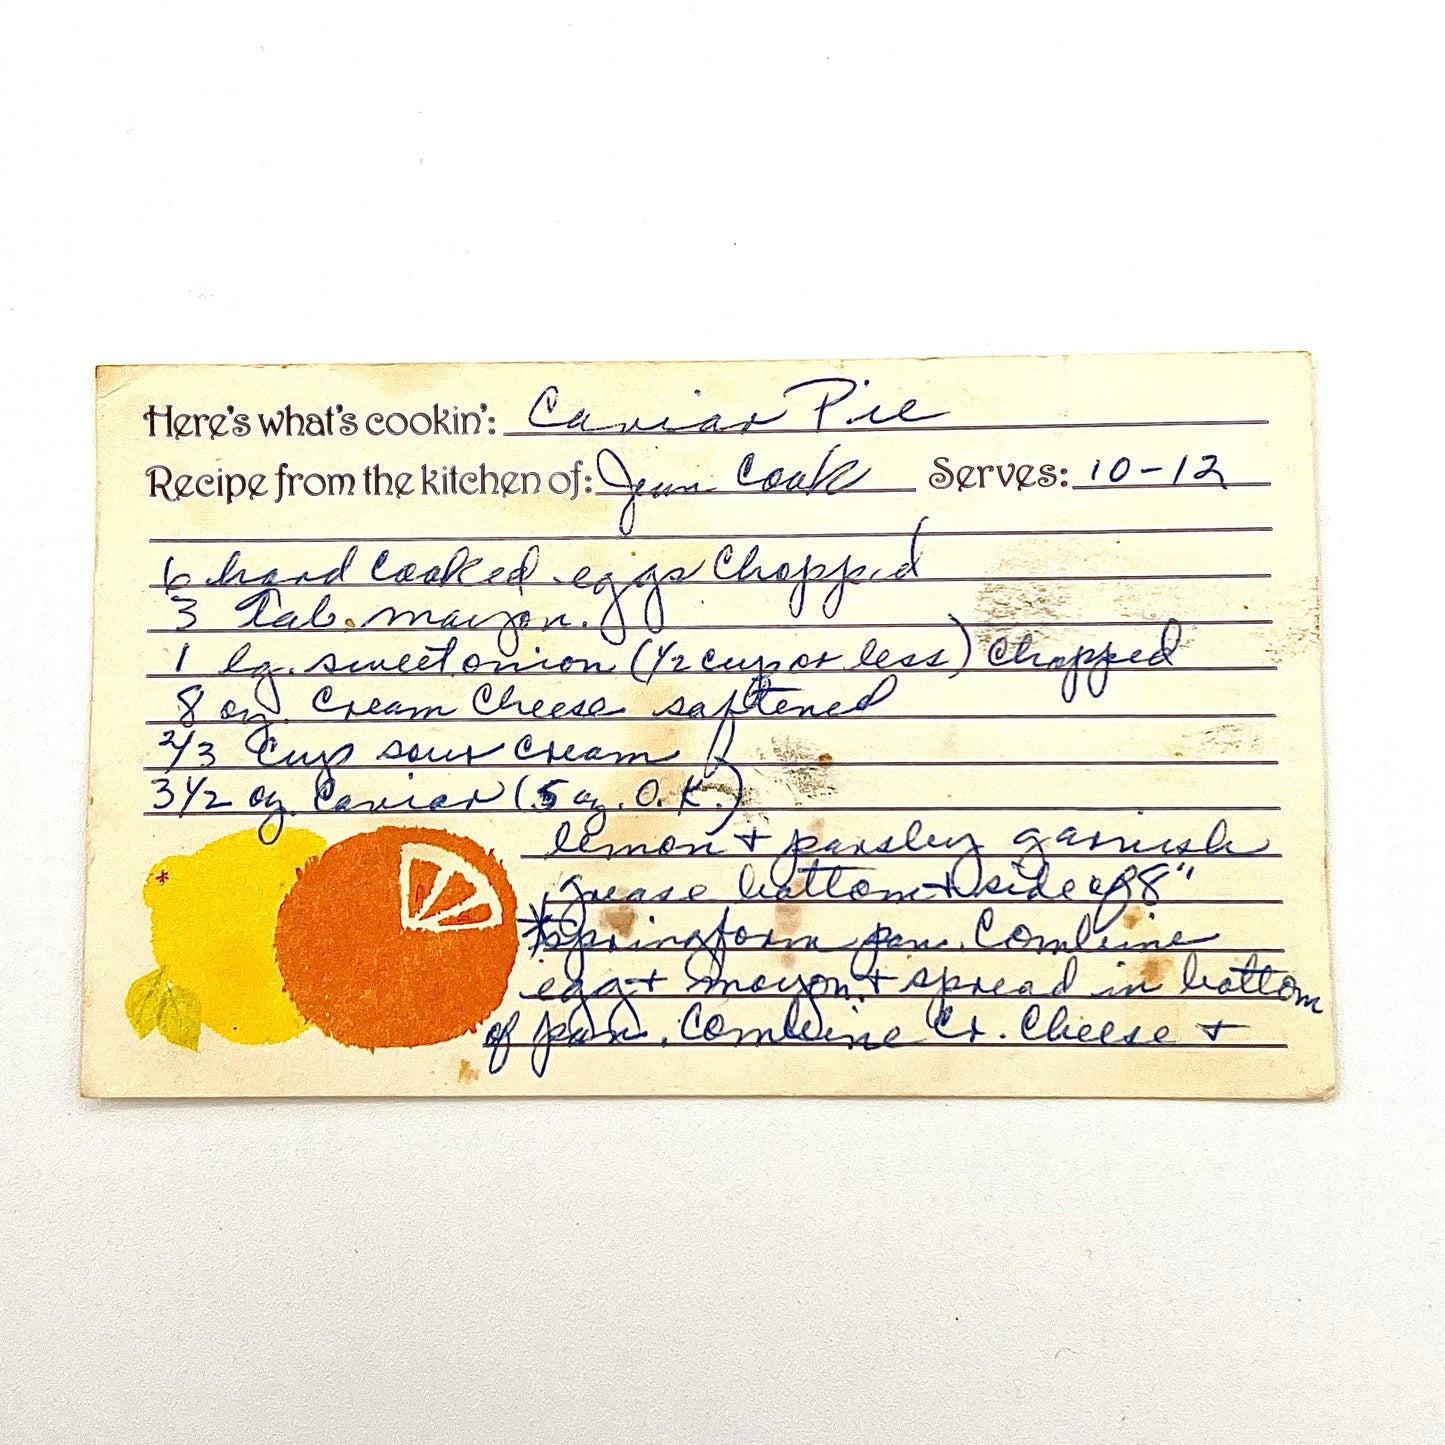 Here's what's cookin': Caviar Pie
Recipe from the kitchen of: Jean Cook Serves: 10-12
6 hard cooked eggs chopped
3 Tab. mayon.
1 lg. sweet onion (1/2 cup or less) chopped
8 oz. cream cheese softened
2/3 cup sour cream
3 1/2 oz. caviar (5 oz. O.K.)
lemon + parsley garnish
grease bottom + side of 8"
*springform pan. Combine
egg + mayon. + spread in bottom
of pan. Combine Cr. Cheese +